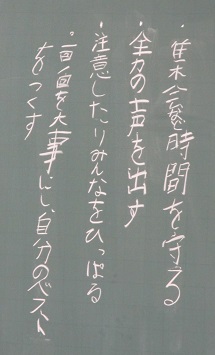 ・集会など時間を守る
・全力の声を出す
・注意したりみんなをひっぱる
・一回一回を大事にし、自分のベスト
をつくす